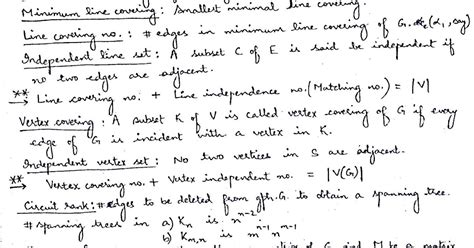 Minimum line covering : Smallest minimal line covering.
Line covering no. : # edges in minimum line covering of G. (α₁,
Independent line set : A subset C of E is said be independent if
no two edges are adjacent.
** → Line covering no. + Line independence no. (Matching no.) = |V|
Vertex covering : A subset K of V is called vertex covering of G if every
edge of G is incident with a vertex in K.
Independent vertex set : No two vertices in S are adjacent.
** → Vertex covering no. + Vertex independent no. = |V(G)|
Circuit rank : # edges to be deleted from gph. G. to obtain a spanning tree.
# spanning trees in a) Kn is n^n-2
b) Km,n is m^n-1 n^m-1
of G and M be a matrix